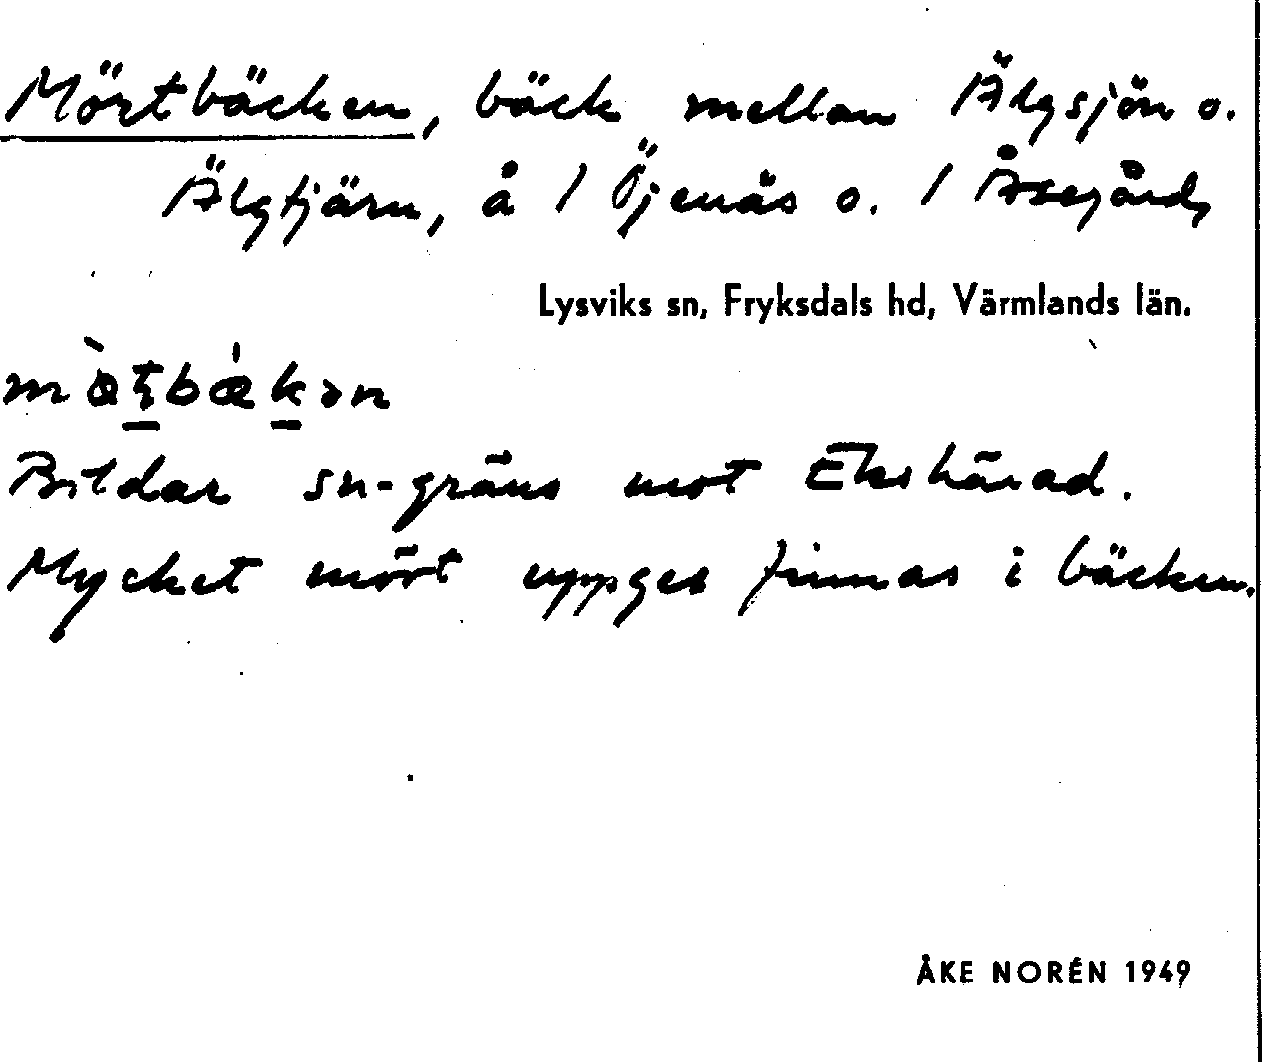 Mörtbäcken, bäck mellan Älgsjön o.
Älgtjärn, å / Öjenäs o. / Åsegård,
Lysviks sn, Fryksdals hd, Värmlands län.
Bildar sn-gräns mot Ekshärad.
Mycket mört uppges finnas i bäcken.
ÅKE NORÉN 1949